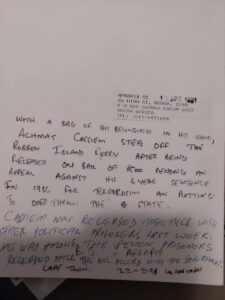 AFRAPIX
SOUTH AFRICA
WITH A BAG OF HIS BELONGING IN HIS HAND,
ACHMAT CASSIEM STEP OFF THE
ROBBEN ISLAND FERRY AFTER BEING
RELEASED ON BAIL OF R500 PENDING AN
APPEAL AGAINST HIS 6 YEAR SENTENCE
IN 1988 FOR TERRORISM AN
TO OVER THROW THE STATE.
CASSIEM WAS RELEASED TOGETHER WITH
OTHER POLITICAL PRISONERS LAST WEEK.
HE WAS AMONG THE SEVEN PRISONERS
RELEASED AFTER
CAPE TOWN. 22-2-91